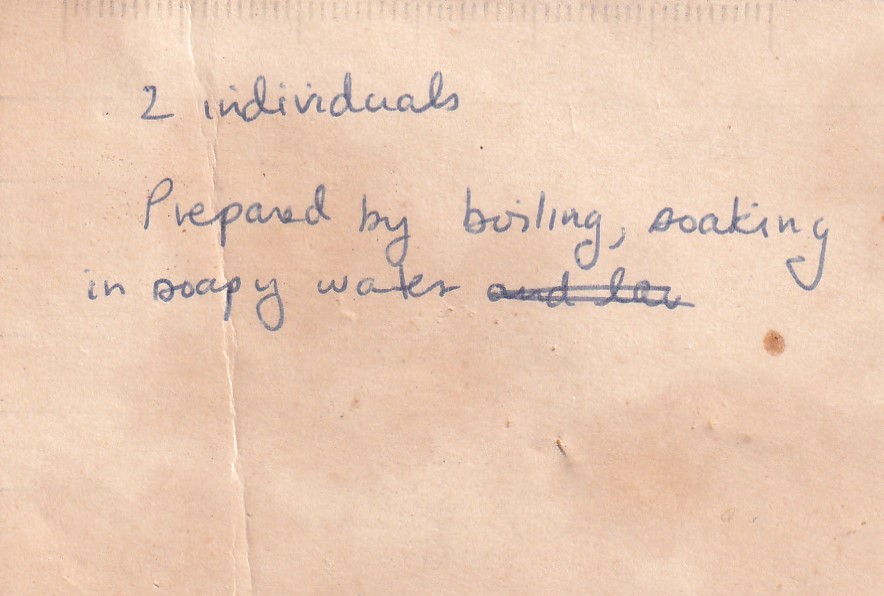 2 individuals
Prepared by boiling, soaking
in soapy water